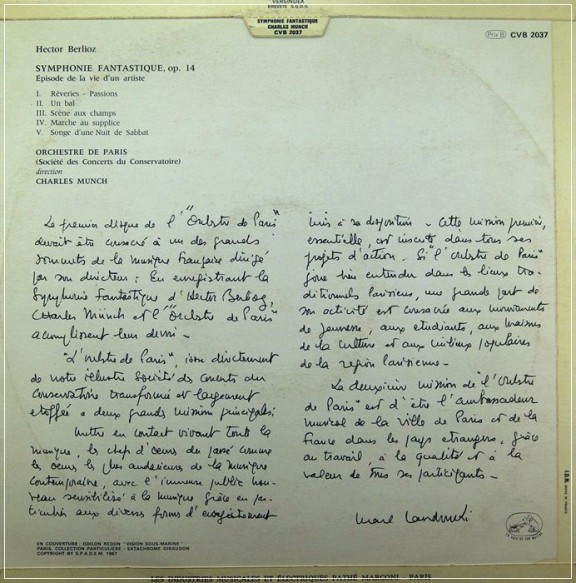 VERSINDEX
BREVETÉ S.G.D.G.
SYMPHONIE FANTASTIQUE
CHARLES MUNCH
CVB 2037
Prix B CVB 2037
Hector Berlioz
SYMPHONIE FANTASTIQUE, op. 14
Épisode de la vie d'un artiste
I. Rêveries - Passions
II. Un bal
III. Scène aux champs
IV. Marche au supplice
V. Songe d'une Nuit de Sabbat
ORCHESTRE DE PARIS
(Société des Concerts du Conservatoire)
direction
CHARLES MUNCH
Le premier disque de l'"Orchestre de Paris"
devait être consacré à un des grands
sommets de la musique française dirigé
par son directeur : En enregistrant la
Symphonie Fantastique d'Hector Berlioz,
Charles Münch et l'"Orchestre de Paris"
accomplissent leur devoir -
"L'orchestre de Paris", issu directement
de notre illustre Société des Concerts du
Conservatoire transformée et largement
étoffée a deux grandes missions principales :
mettre en contact vivant toute la
musique, les chefs d'oeuvre du passé comme
les oeuvres les plus audacieuses de la musique
contemporaine, avec l'immense public nou-
veau sensibilisé à la musique grâce en par-
ticulier aux diverses formes d'enregistrement
mis à sa disposition - Cette mission première,
essentielle, est inscrite dans tous ses
projets d'action - Si "l'Orchestre de Paris"
sera bien entendu dans les lieux tra-
ditionnels Parisiens, une grande part de
son activité est consacrée aux mouvements
de jeunesse, aux étudiants, aux maisons
de la culture et aux milieux populaires
de la region Parisienne -
La deuxième mission de "l'Orchestre
de Paris" est d'être l'ambassadeur
musical de la ville de Paris et de la
France dans les pays etrangers, grâce
au travail, à la qualité et à la
valeur de tous ses participants -
Marcel Landowski
EN COUVERTURE : ODILON REDON "VISION SOUS-MARINE"
PARIS, COLLECTION PARTICULIERE - EKTACHROME GIRAUDON
COPYRIGHT BY S.P.A.D.E.M. 1967
LA VOIX DE SON MAITRE
LES INDUSTRIES MUSICALES ET ÉLECTRIQUES PATHÉ MARCONI - PARIS